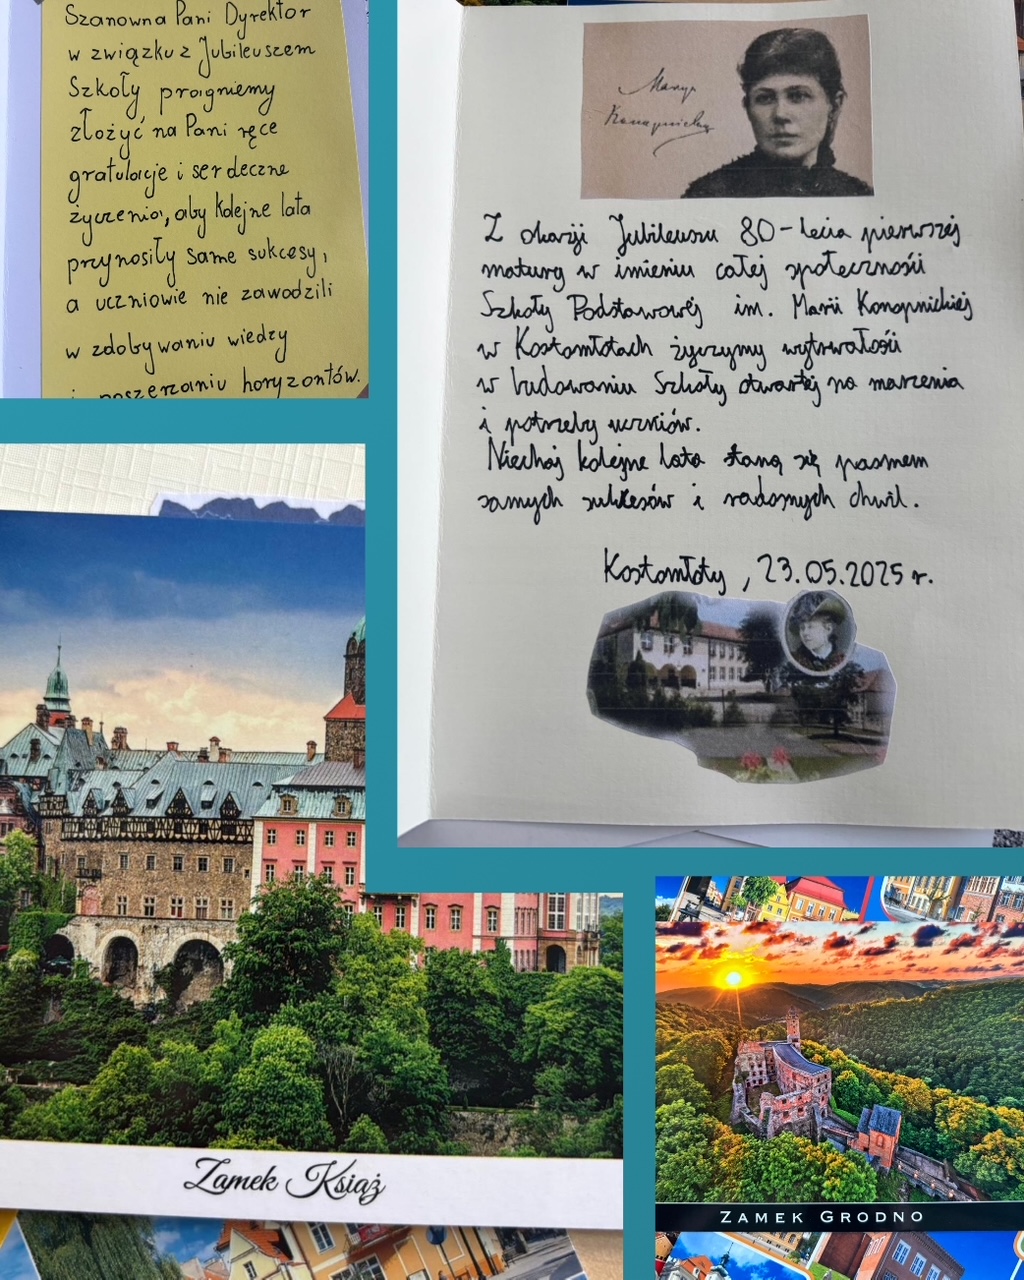 Szanowna Pani Dyrektor
w związku z Jubileuszem
Szkoły pragniemy
złożyć na Pani ręce
gratulacje i serdeczne
życzenia, aby kolejne lata
przynosiły same sukcesy,
a uczniowie nie zawodzili
w zdobywaniu wiedzy
i poszerzaniu horyzontów.
Marya
Konopnicka
Z okazji Jubileuszu 80-lecia pierwszej
matury w imieniu całej społeczności
Szkoły Podstawowej im. Marii Konopnickiej
w Kostomłotach życzymy wytrwałości
w budowaniu Szkoły otwartej na marzenia
i potrzeby uczniów.
Niechaj kolejne lata staną się pasmem
samych sukcesów i radosnych chwil.
Kostomłoty, 23.05.2025 r.
Zamek Książ
ZAMEK GRODNO